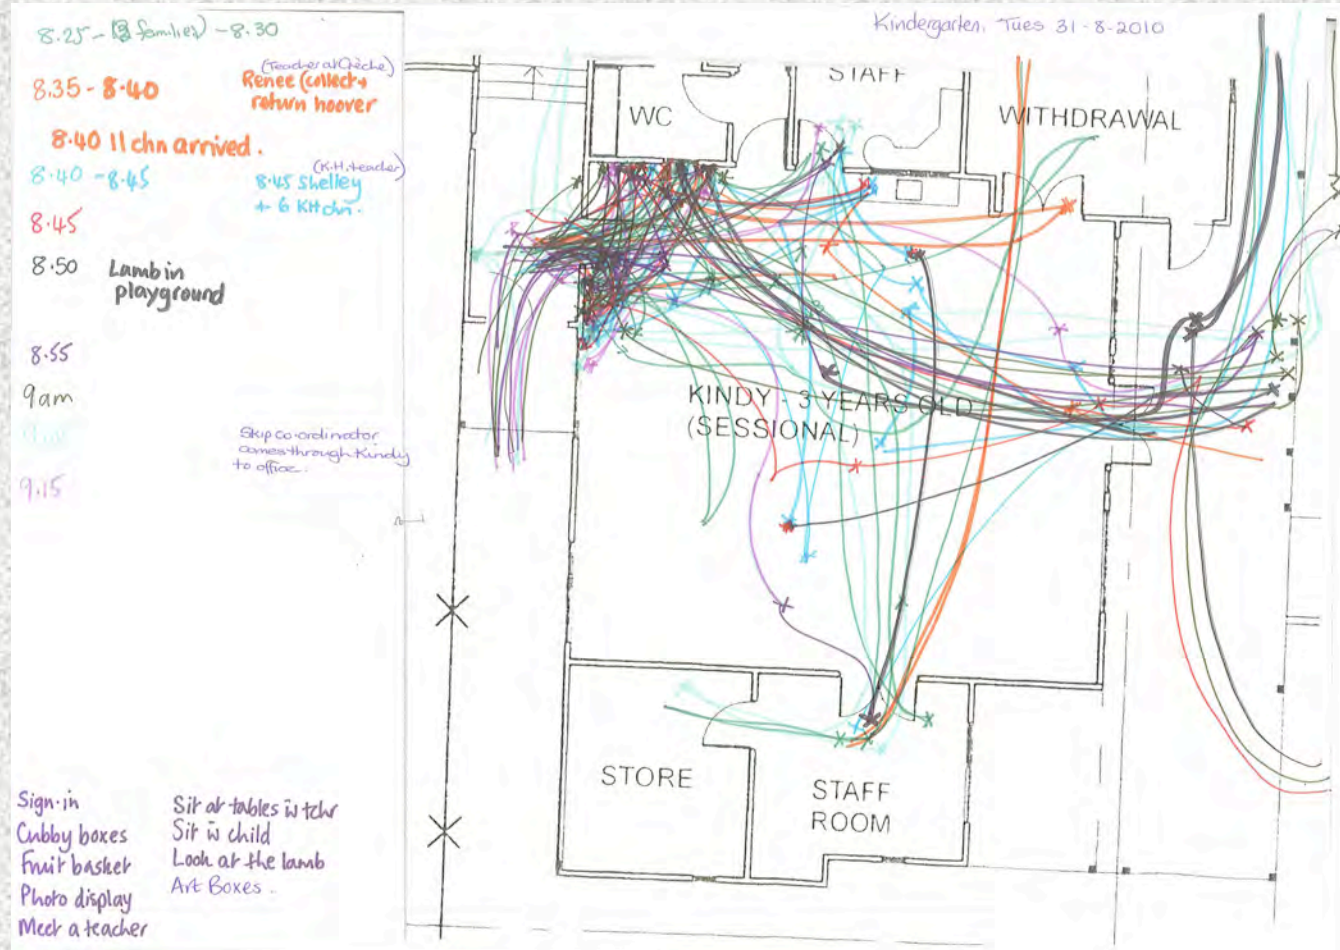 Kindergarten, Tues 31-8-2010
8.25 - (3 families) - 8.30
(Teacher at Crèche)
8.35 - 8.40 Renee (collect +
return hoover
8.40 11 chn arrived.
(K.H. teacher)
8.40 - 8.45 8.45 Shelley
+ 6 KH chn.
8.45
8.50 Lamb in
playground
8.55
9am
Skip co-ordinator
comes through Kindy
to office.
9.15
Sign-in
Cubby boxes
Fruit basket
Photo display
Meet a teacher
Sit at tables w tchr
Sit w child
Look at the lamb
Art Boxes..
STAFF
WC
WITHDRAWAL
KINDY - 3 YEARS OLD
(SESSIONAL)
STORE
STAFF
ROOM